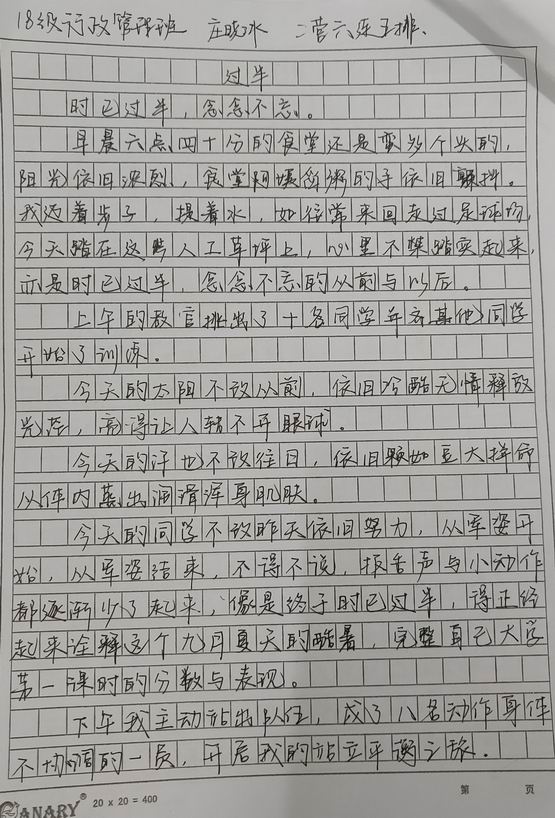 18级行政管理班 庄晓冰 二营六连五排.
过半
时已过半，念念不忘。
早晨六点四十分的食堂还是蛮多个头的，
阳光依旧浓烈，食堂阿姨舀粥的手依旧颤抖。
我迈着步子，提着水，如往常来回走过足球场，
今天踏在这些人工草坪上，心里不禁踏实起来，
亦是时已过半，念念不忘的从前与以后。
上午的教官挑出了十名同学并在其他同学
开始了训练。
今天的太阳不改从前，依旧冷酷无情释放
光茫，亮得让人转不开眼球。
今天的汗也不改往日，依旧颗如豆大拼命
从体内蒸出润滑浑身肌肤。
今天的同学不改昨天依旧努力，从军姿开
始，从军姿结束，不得不说，报告声与小动作
都逐渐少了起来，像是终于时已过半，得正经
起来诠释这个九月夏天的酷暑，完整自己大学
第一课时的分数与表现。
下午我主动站出队伍，成了八名动作身体
不协调的一员，开启我的站立平衡之旅。
CANARY® 20 x 20 = 400 第 页